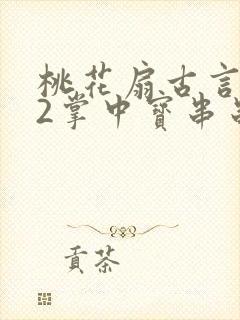 桃花扇古言
2掌中寶串
貢茶